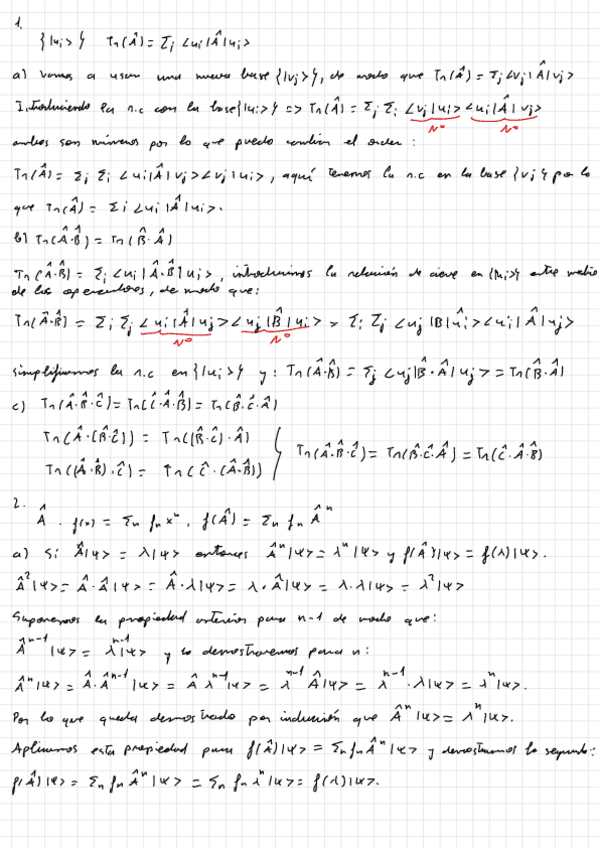 1.
{|ui>} Tr(Â) = Σi <ui|Â|ui>
a) Vamos a usar una nueva base {|vj>}, de modo que Tr(Â) = Σj <vj|Â|vj>
Introduciendo la r.c con la base {|ui>} => Tr(Â) = Σj Σi <vj|ui> <ui|Â|vj>
Nº Nº
ambos son números por lo que puedo cambiar el orden:
Tr(Â) = Σj Σi <ui|Â|vj> <vj|ui>, aquí tenemos la r.c en la base {vj} por lo
que Tr(Â) = Σi <ui|Â|ui>.
b) Tr(Â·B̂) = Tr(B̂·Â)
Tr(Â·B̂) = Σi <ui|Â·B̂|ui>, introducimos la relación de cierre en {|ui>} entre medio
de los operadores, de modo que:
Tr(Â·B̂) = Σi Σj <ui|Â|uj> <uj|B̂|ui> = Σi Σj <uj|B̂|ui> <ui|Â|uj>
Nº Nº
simplificamos la r.c en {|ui>} y: Tr(Â·B̂) = Σj <uj|B̂·Â|uj> = Tr(B̂·Â)
c) Tr(Â·B̂·Ĉ) = Tr(Ĉ·Â·B̂) = Tr(B̂·Ĉ·Â)
Tr(Â·(B̂·Ĉ)) = Tr((B̂·Ĉ)·Â)
Tr((Â·B̂)·Ĉ) = Tr(Ĉ·(Â·B̂)) } Tr(Â·B̂·Ĉ) = Tr(B̂·Ĉ·Â) = Tr(Ĉ·Â·B̂)
2.
Â. f(x) = Σn fn xⁿ, f(Â) = Σn fn Âⁿ
a) Si Â|ψ> = λ|ψ> entonces Âⁿ|ψ> = λⁿ|ψ> y f(Â)|ψ> = f(λ)|ψ>.
Â²|ψ> = Â·Â|ψ> = Â·λ|ψ> = λ·Â|ψ> = λ·λ|ψ> = λ²|ψ>
Suponemos la propiedad anterior para n-1 de modo que:
Âⁿ⁻¹|ψ> = λⁿ⁻¹|ψ> y lo demostraremos para n:
Âⁿ|ψ> = Â·Âⁿ⁻¹|ψ> = Â λⁿ⁻¹|ψ> = λⁿ⁻¹ Â|ψ> = λⁿ⁻¹·λ|ψ> = λⁿ|ψ>.
Por lo que queda demostrado por inducción que Âⁿ|ψ> = λⁿ|ψ>.
Aplicamos esta propiedad para f(Â)|ψ> = Σn fn Âⁿ|ψ> y demostramos lo segundo:
f(Â)|ψ> = Σn fn Âⁿ|ψ> = Σn fn λⁿ|ψ> = f(λ)|ψ>.